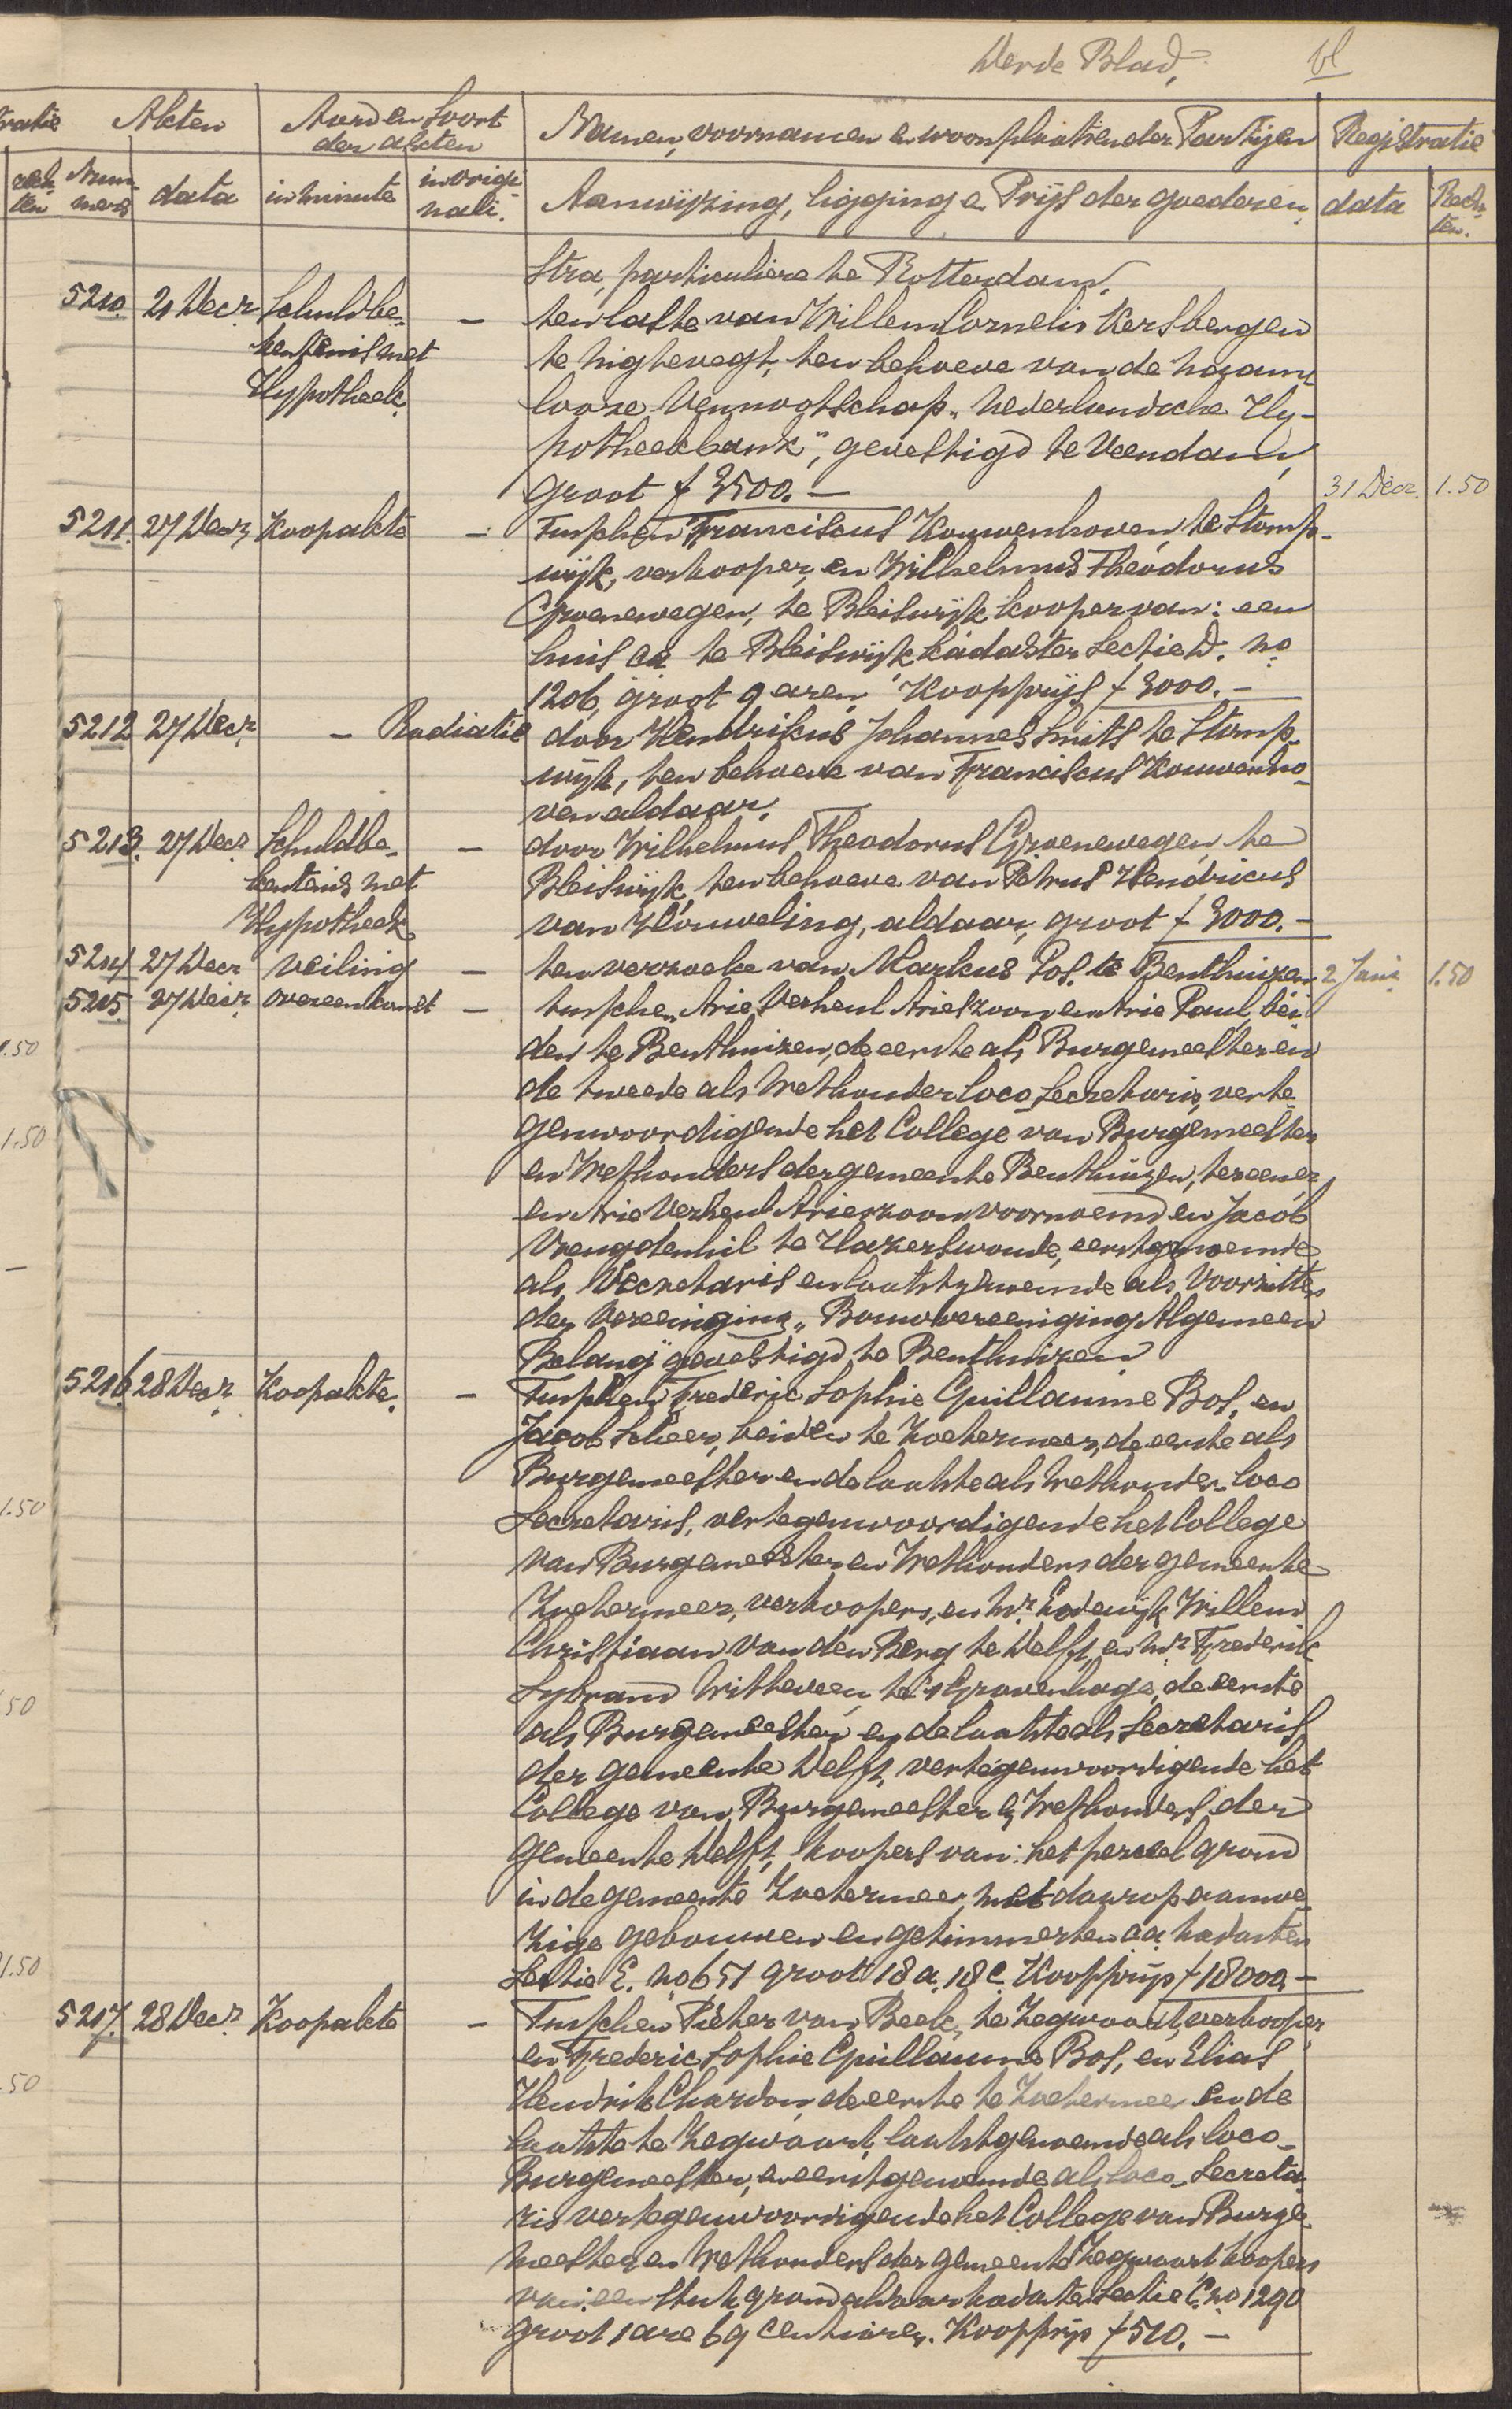 Derde Blad, bl
Akten Aard en Soort der akten Namen, voornamen en woonplaatsen der Partijen Registratie
Nummers data in minute in originali. Aanwijzing, ligging en Prijs der goederen data Rechten.
stra, particuliere te Rotterdam.
5210. 21 Decr. Schuldbe- — ten laste van Willem Cornelis Kersbergen
kentenis met te Nigtevegt, ten behoeve van de naam
Hypotheek. looze Vennootschap "Nederlandsche Hy-
potheekbank", gevestigd te Veendam,
groot f 3500.— 31 Decr. 1.50
5211. 27 Decr Koopakte — Tusschen Franciscus Kouwenhoven, te Stomp-
wijk, verkooper, en Wilhelmus Theodorus
Groenewegen, te Bleiswijk kooper van: een
huis ca te Bleiswijk kadaster Sectie D. no
1206, groot 9 aren, Koopprijs f 3000.—
5212 27 Decr. — Radiatie door Hendrikus Johannes Smits te Stomp-
wijk, ten behoeve van Franciscus Kouwenho-
ven aldaar.
5213. 27 Decr. Schuldbe- — door Wilhelmus Theodorus Groenewegen, te
kentenis met Bleiswijk, ten behoeve van Petrus Hendricus
Hypotheek van Houweling, aldaar, groot f 3000.—
5214 27 Decr veiling — ten verzoeke van Markus Pos. te Benthuizen 2 Jan. 1.50
5215. 27 Decr. overeenkomst — tusschen Arie Verheul Arieszoon en Arie Paul, bei
den te Benthuizen, de eerste als Burgemeester en
de tweede als Wethouder loco Secretaris, verte-
genwoordigende het College van Burgemeester
en Wethouders der gemeente Benthuizen, ter eener
en Arie Verheul Arieszoon voornoemd en Jacob
Vreugdenhil te Hazerswoude, eerstgenoemde
als Secretaris en laatstgenoemde als Voorzitter
der Vereeniging "Bouwvereeniging Algemeen
Belang" gevestigd te Benthuizen
5216 28 Decr. Koopakte. — Tusschen Frederic Sophie Guillaume Bos, en
Jacob Scheer, beiden te Zoetermeer, de eerste als
Burgemeester en de laatste als Wethouder-loco
Secretaris, vertegenwoordigende het College
van Burgemeester en Wethouders der gemeente
Zoetermeer, verkoopers, en Mr. Lodewijk Willem
Christiaan van den Berg te Delft, en Mr. Frederik
Sybrand Witteveen, te 's Gravenhage, de eerste
als Burgemeester en de laatste als Secretaris
der gemeente Delft, vertegenwoordigende het
College van Burgemeester & Wethouders der
gemeente Delft, koopers van: het perceel grond
in de gemeente Zoetermeer, met daarop aanwe-
zige gebouwen en getimmerten ca, kadaster
Sectie E. no 651 groot 18 a. 18 c. Koopprijs f 18000.—
5217. 28 Decr. Koopakte — Tusschen Pieter van Beek, te Zegwaart, verkooper
en Frederic Sophie Guillaume Bos, en Elias
Hendrik Chardon, de eerste te Zoetermeer en de
laatste te Zegwaart, laatstgenoemde als loco-
Burgemeester, en eerstgenoemde als loco-Secreta-
ris vertegenwoordigende het College van Burge-
meester en Wethouders der gemeente Zegwaart koopers
van: een stuk grond aldaar kadaster Sectie C. no 1290
groot 1 are 69 centiaren. Koopprijs f 510.—
1.50
1.50
1.50
50
1.50
.50